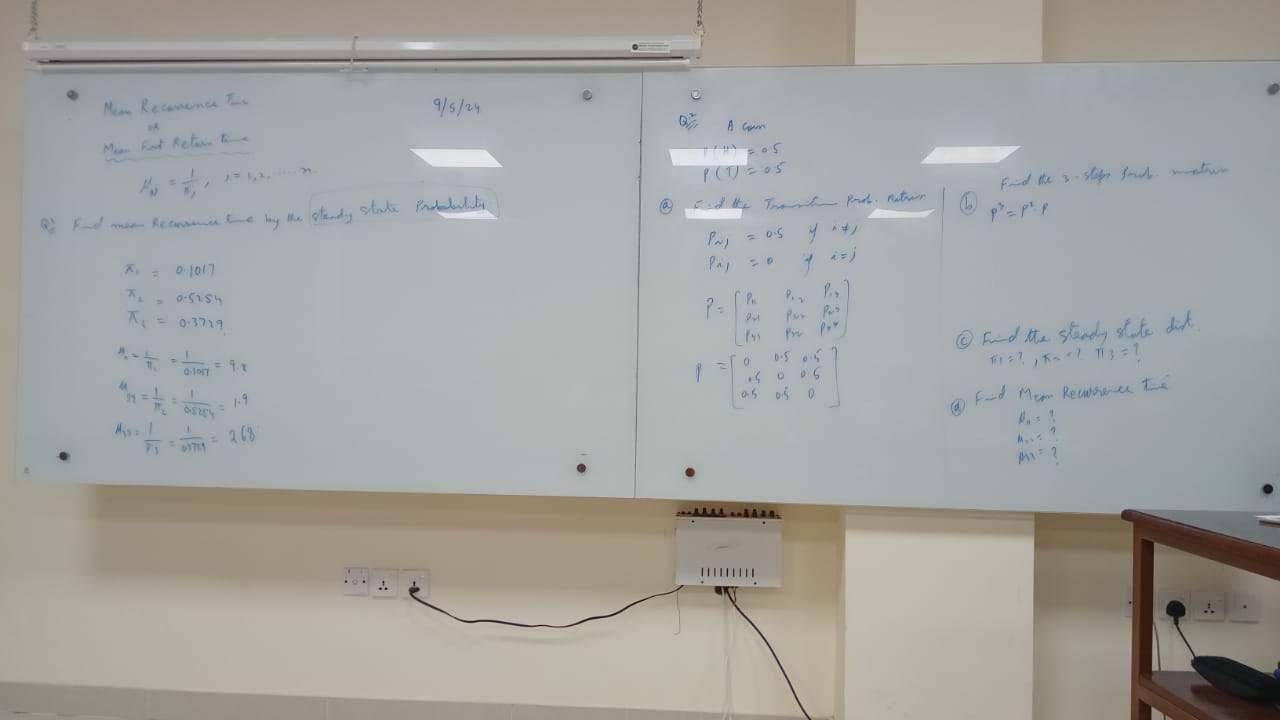 Mean Recurrence Time
or
Mean First Return time
9/5/24
μii = 1/πi, i = 1, 2, ..... n
Q1: Find mean Recurrence time by the steady State Probability
π1 = 0.1017
π2 = 0.5254
π3 = 0.3729
μ11 = 1/π1 = 1/0.1017 = 9.8
μ22 = 1/π2 = 1/0.5254 = 1.9
μ33 = 1/π3 = 1/0.3729 = 2.68
Q2: A coin
P(H) = 0.5
P(T) = 0.5
(a) Find the Transition Prob. Matrix
Pij = 0.5 if i≠j
Pij = 0 if i=j
P = [P11 P12 P13
P21 P22 P23
P31 P32
P = [0 0.5 0.5
0.5 0 0.5
0.5 0.5 0]
(b) Find the 3-steps Prob. matrix
P³ = P² . P
(c) Find the steady state dist.
π1 = ?, π2 = ? π3 = ?
(d) Find Mean Recurrence time
μ11 = ?
μ22 = ?
μ33 = ?